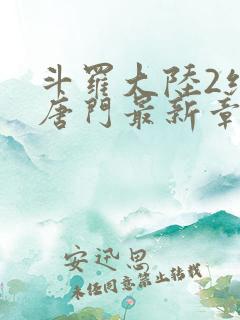 斗羅大陸2
唐門最新章
安迅思
未经同意禁止转载